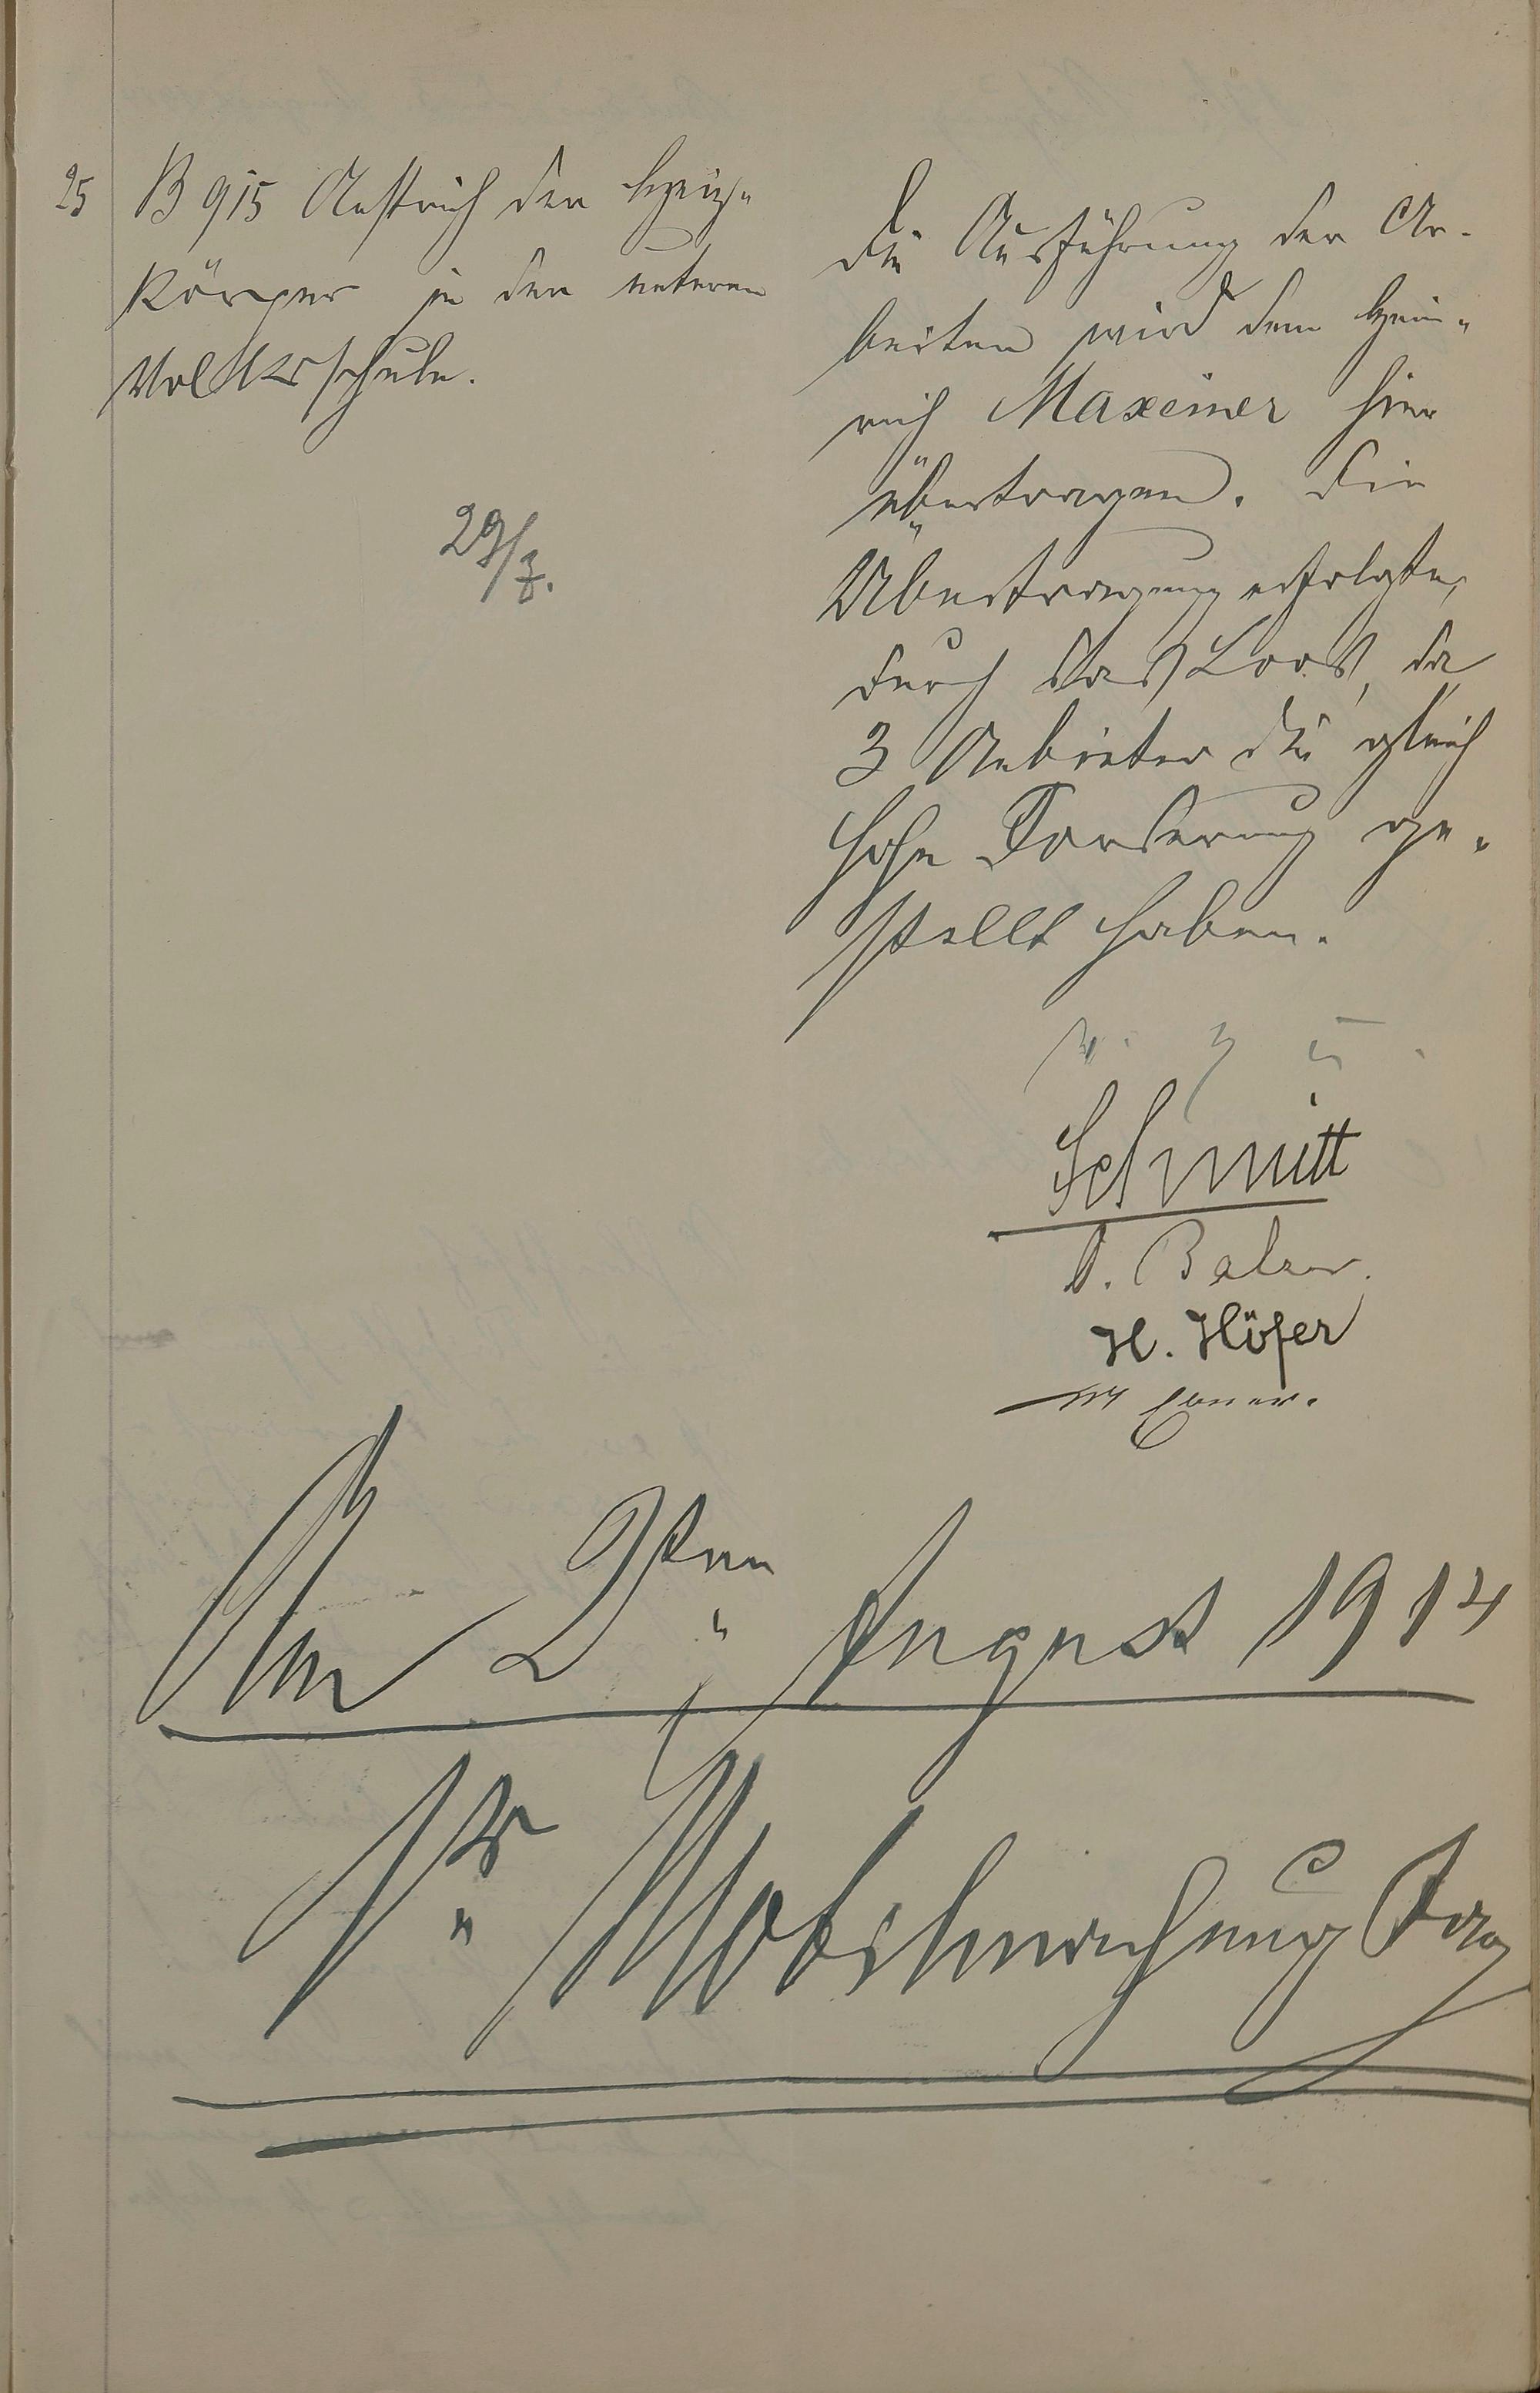 25
B 915 Anstrich der Heiz-
körper in der unteren
Volksschule.
29/7.
Die Ausführung der Ar-
beiten wird dem Hein-
rich Maxeiner hier
übertragen. Die
Übertragung erfolgte,
durch das Loos, da
3 Anbieter die gleich
hohe Forderung ge-
stellt haben.
v. g. u.
Schmitt
Balzer.
H. Höfer
Am 2ten August 1914
1r Mobilmachung Tag